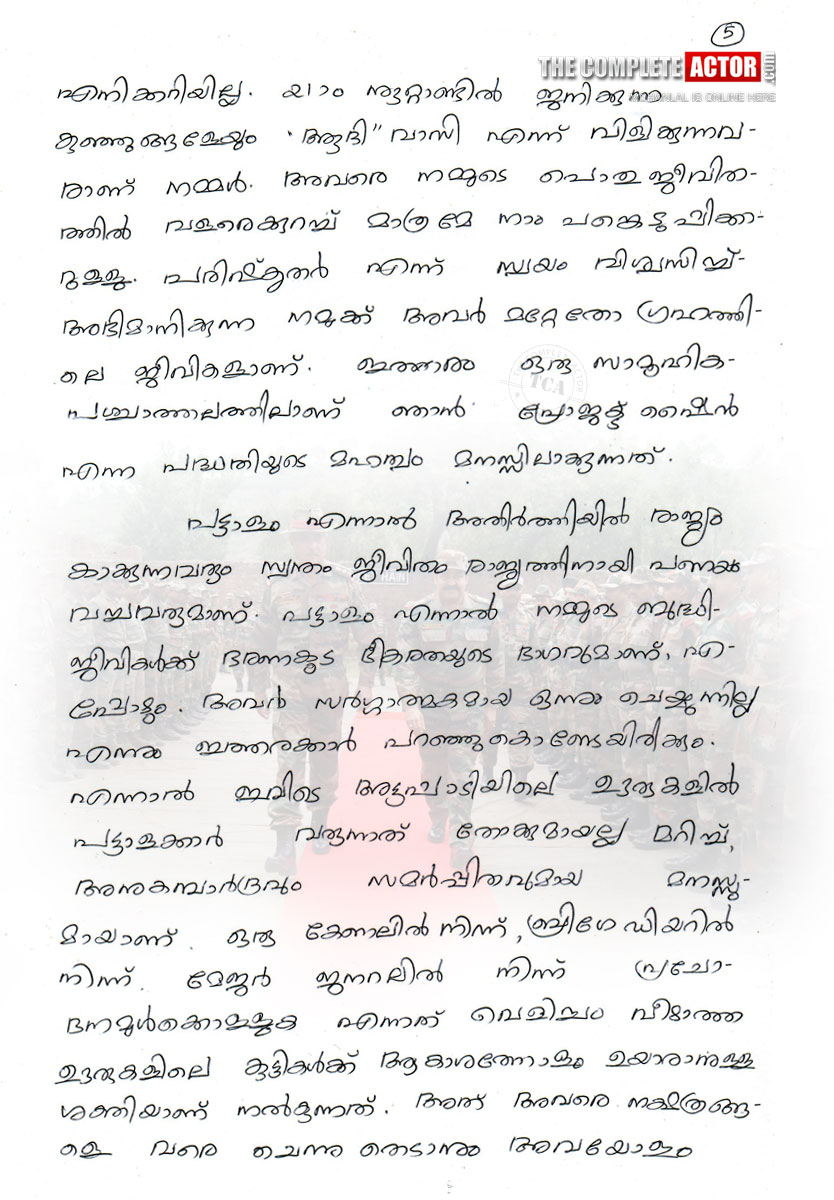 5
THE COMPLETE ACTOR .com
MOHANLAL IS ONLINE HERE
എനിക്കറിയില്ല. ൨൧ാം നൂറ്റാണ്ടിൽ ജനിക്കുന്ന
കുഞ്ഞുങ്ങളേയും "ആദി" വാസി എന്ന് വിളിക്കുന്നവ-
രാണ് നമ്മൾ. അവരെ നമ്മുടെ പൊതു ജീവിത-
ത്തിൽ വളരെക്കുറച്ച് മാത്രമേ നാം പങ്കെടുപ്പിക്കാ-
റുള്ളൂ. പരിഷ്കൃതർ എന്ന് സ്വയം വിശ്വസിച്ച്-
അഭിമാനിക്കുന്ന നമുക്ക് അവർ മറ്റേതോ ഗ്രഹത്തി-
ലെ ജീവികളാണ്. ഇത്തരം ഒരു സാമൂഹിക-
പശ്ചാത്തലത്തിലാണ് ഞാൻ പ്രോജക്ട് ഷൈൻ
എന്ന പദ്ധതിയുടെ മഹത്വം മനസ്സിലാക്കുന്നത്.
പട്ടാളം എന്നാൽ അതിർത്തിയിൽ രാജ്യം
കാക്കുന്നവരും സ്വന്തം ജീവിതം രാജ്യത്തിനായി പണയം
വച്ചവരുമാണ്. പട്ടാളം എന്നാൽ നമ്മുടെ ബുദ്ധി-
ജീവികൾക്ക് ഭരണകൂട ഭീകരതയുടെ ഭാഗവുമാണ്, എ-
പ്പോഴും. അവർ സർഗ്ഗാത്മകമായ ഒന്നും ചെയ്യുന്നില്ല
എന്നും ഇത്തരക്കാർ പറഞ്ഞുകൊണ്ടേയിരിക്കും.
എന്നാൽ ഇവിടെ അട്ടപ്പാടിയിലെ ഊരുകളിൽ
പട്ടാളക്കാർ വരുന്നത് തോക്കുമായല്ല മറിച്ച്,
അനുകമ്പാർദ്രവും സമർപ്പിതവുമായ മനസ്സു-
മായാണ്. ഒരു കേണലിൽ നിന്ന്, ബ്രിഗേഡിയറിൽ
നിന്ന്. മേജർ ജനറലിൽ നിന്ന് പ്രചോ-
ദനമുൾക്കൊള്ളുക എന്നത് വെളിച്ചം വീഴാത്ത
ഊരുകളിലെ കുട്ടികൾക്ക് ആകാശത്തോളം ഉയരാനുള്ള
ശക്തിയാണ് നൽകുന്നത്. അത് അവരെ നക്ഷത്രങ്ങ-
ളെ വരെ ചെന്നു തൊടാനും അവയോളം